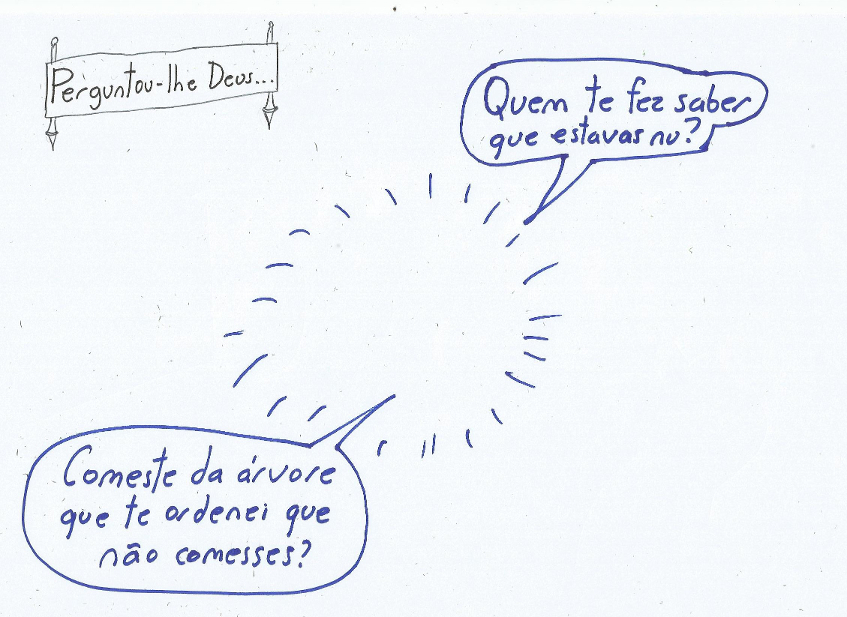 Perguntou-lhe Deus...
Quem te fez saber
que estavas nu?
Comeste da árvore
que te ordenei que
não comesses?